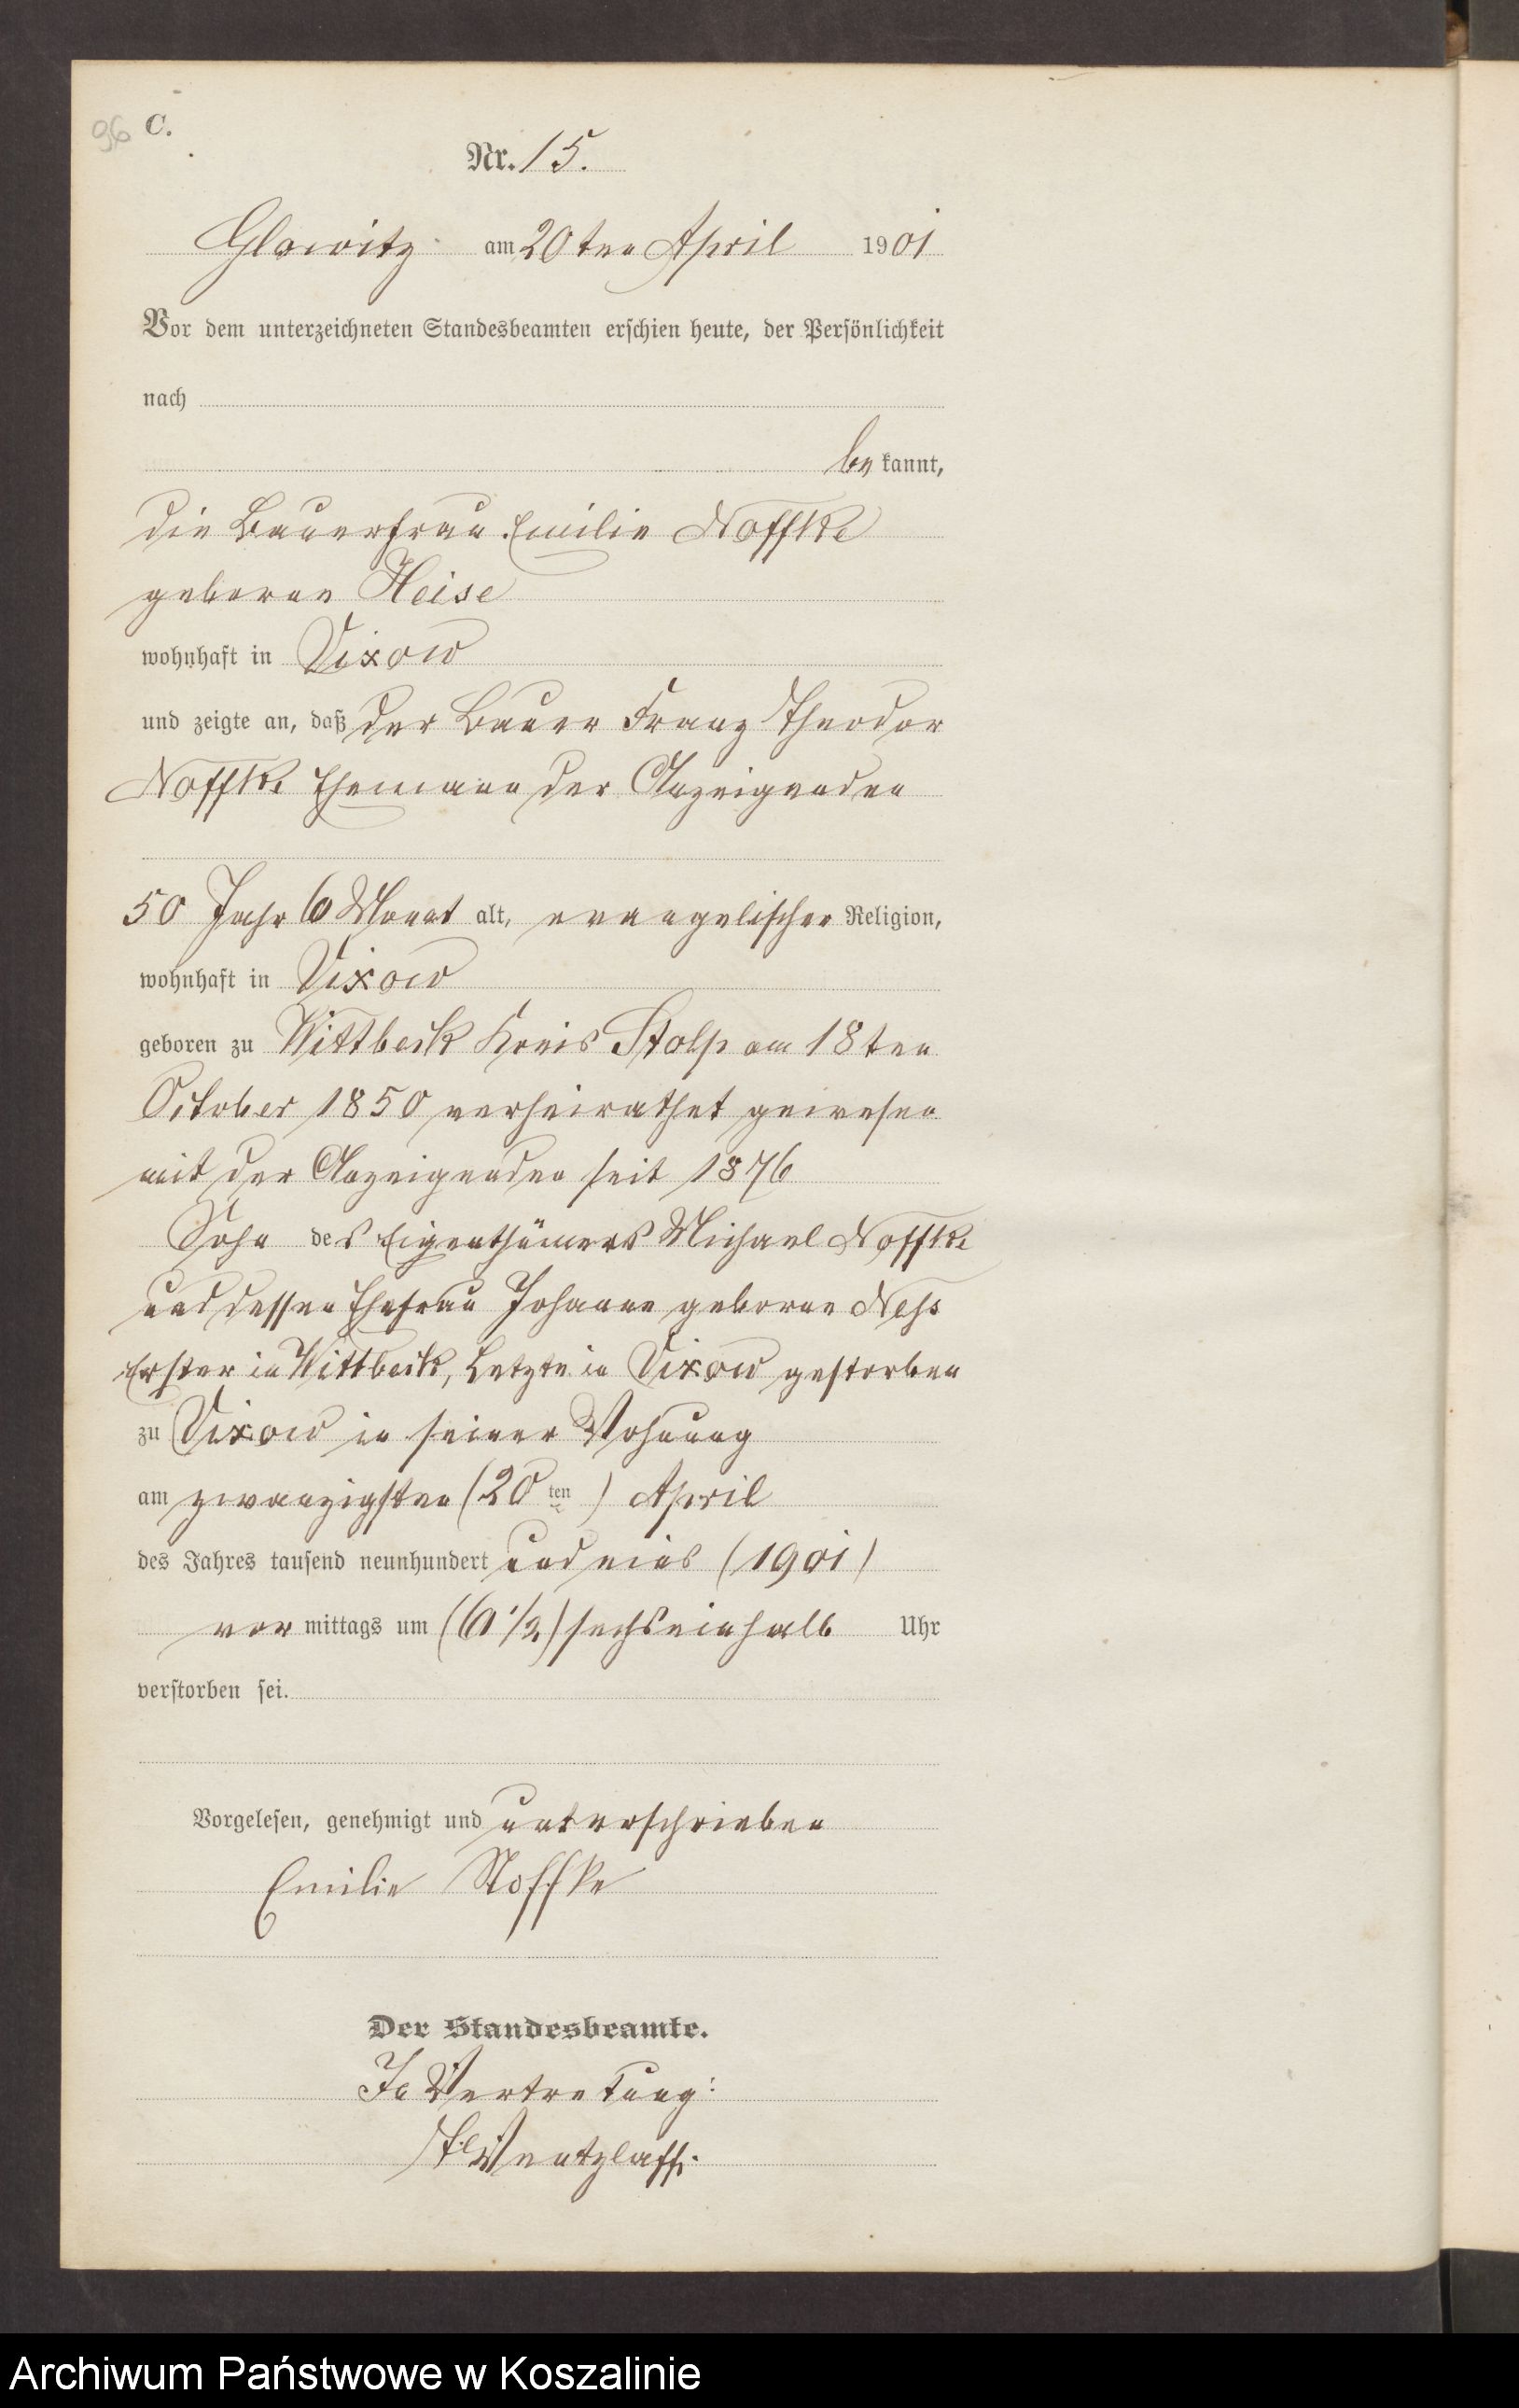 96 C.
Nr. 15.
Glowitz am 20ten April 1901
Vor dem unterzeichneten Standesbeamten erschien heute, der Persönlichkeit
nach
be kannt,
die Bauerfrau Emilie Noffke
geborene Heise
wohnhaft in Vixow
und zeigte an, daß der Bauer Franz Theodor
Noffke Ehemann der Anzeigenden
50 Jahr 6 Monat alt, evangelischer Religion,
wohnhaft in Vixow
geboren zu Wittbeck Kreis Stolp am 18ten
October 1850 verheirathet gewesen
mit der Anzeigenden seit 1876
Sohn des Eigenthümers Michael Noffke
und dessen Ehefrau Johanne geborne
Erster in Wittbeck, Letzte in Vixow gestorben
zu Vixow in seiner Wohnung
am zwanzigsten (20ten) April
des Jahres tausend neunhundert und eins (1901)
vor mittags um (6 1/2) sechseinhalb Uhr
verstorben sei.
Vorgelesen, genehmigt und unterschrieben
Emilie Noffke
Der Standesbeamte.
In Vertretung:
Wentzlaff.
Archiwum Państwowe w Koszalinie